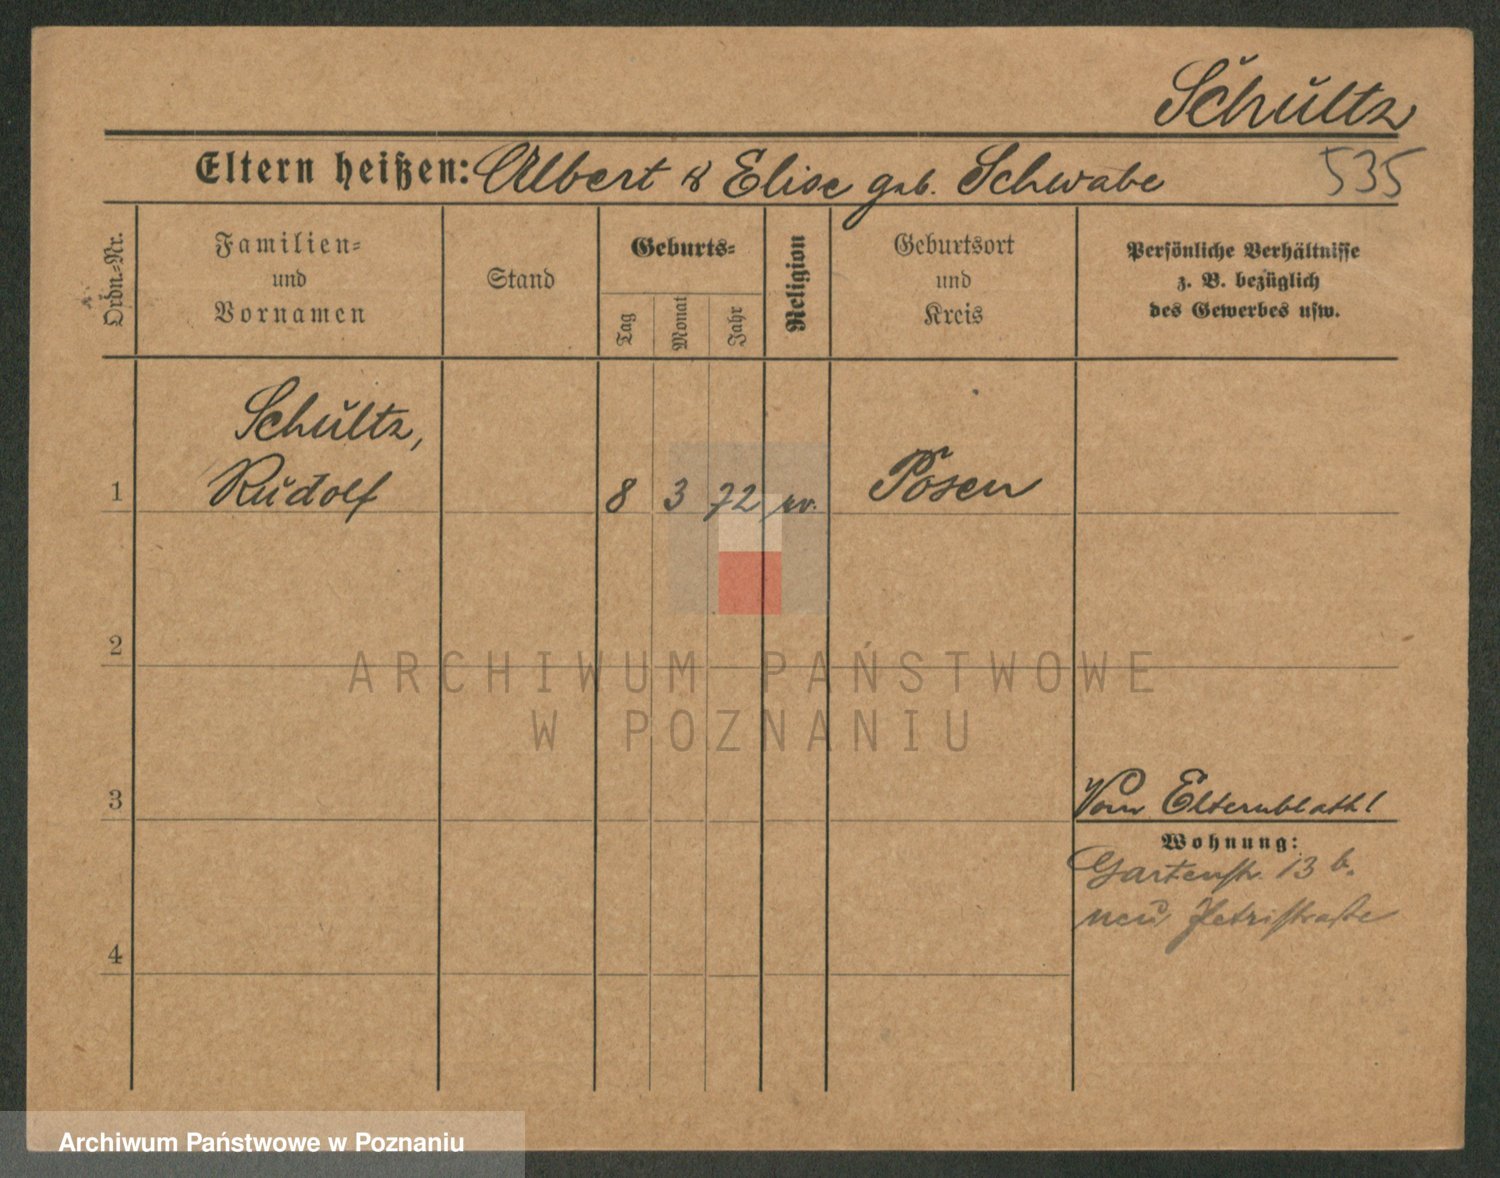 Schultz
Eltern heißen: Albert & Elise geb. Schwabe 535
Ordn.-Nr.
Familien-
und
Vornamen
Stand
Geburts-
Tag
Monat
Jahr
Religion
Geburtsort
und
Kreis
Persönliche Verhältnisse
z. B. bezüglich
des Gewerbes usw.
Schultz,
1 Rudolf 8 3 72 ev. Posen
2
ARCHIWUM PAŃSTWOWE
W POZNANIU
3 Vom Elternblatt!
Wohnung:
Gartenstr. 13 b.
neu Petristraße
4
Archiwum Państwowe w Poznaniu